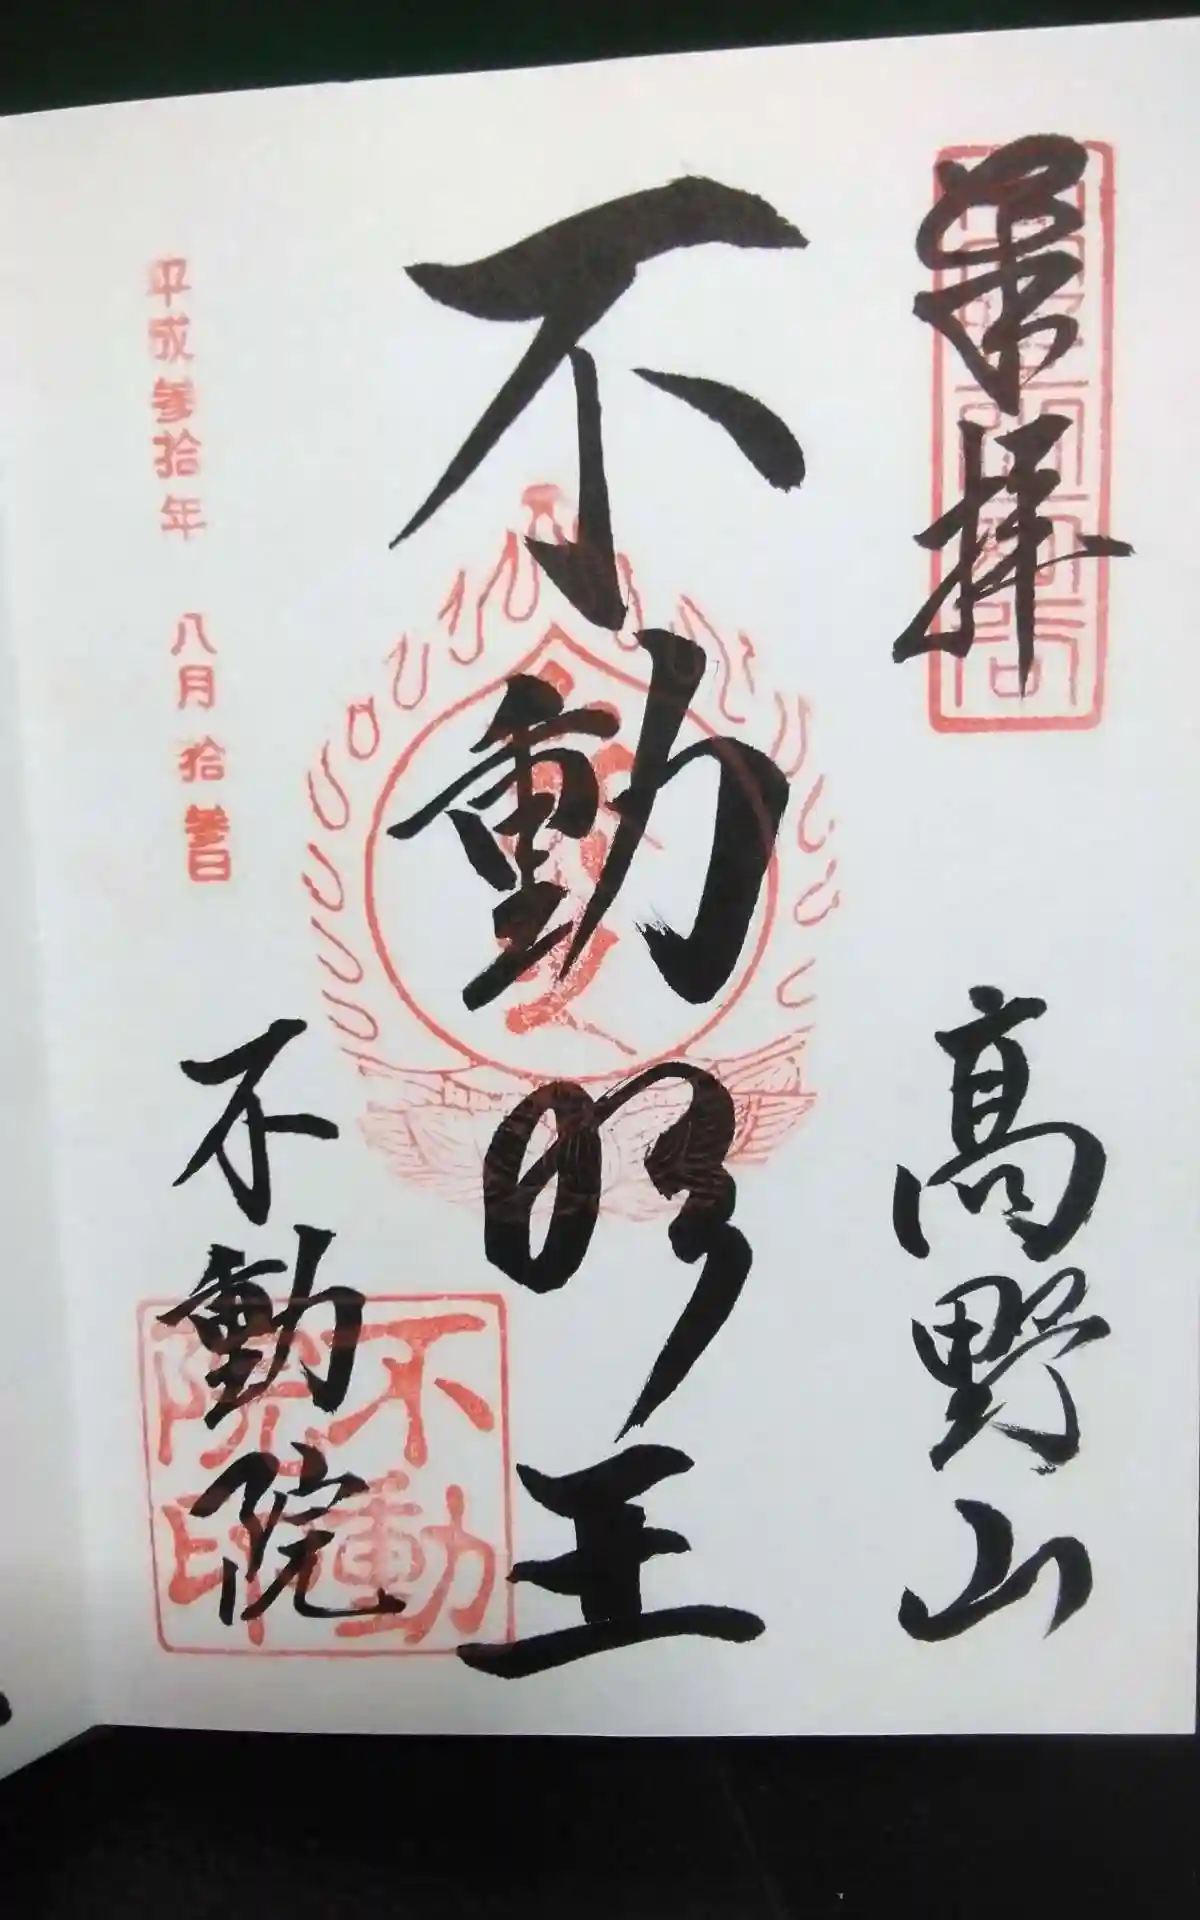 奉拝
高野山
不動明王
平成参拾年 八月拾参日
不動院
不動
院印